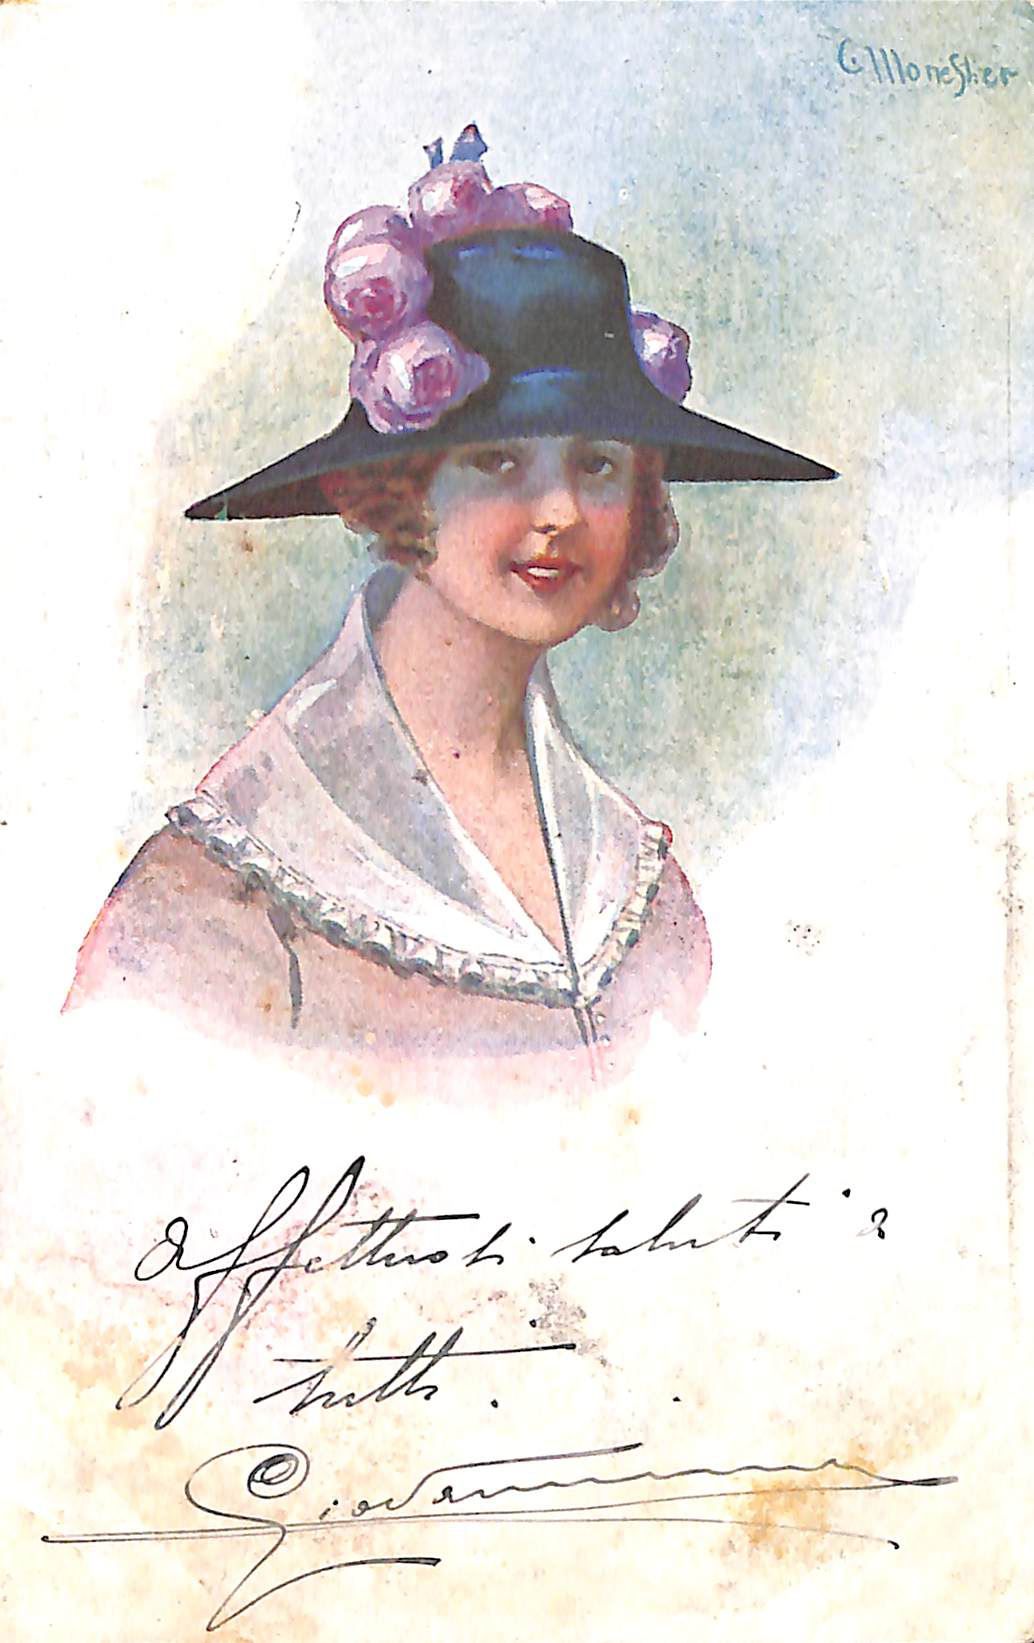 C. Monestier
Affettuosi saluti a
tutti.
Giovanni